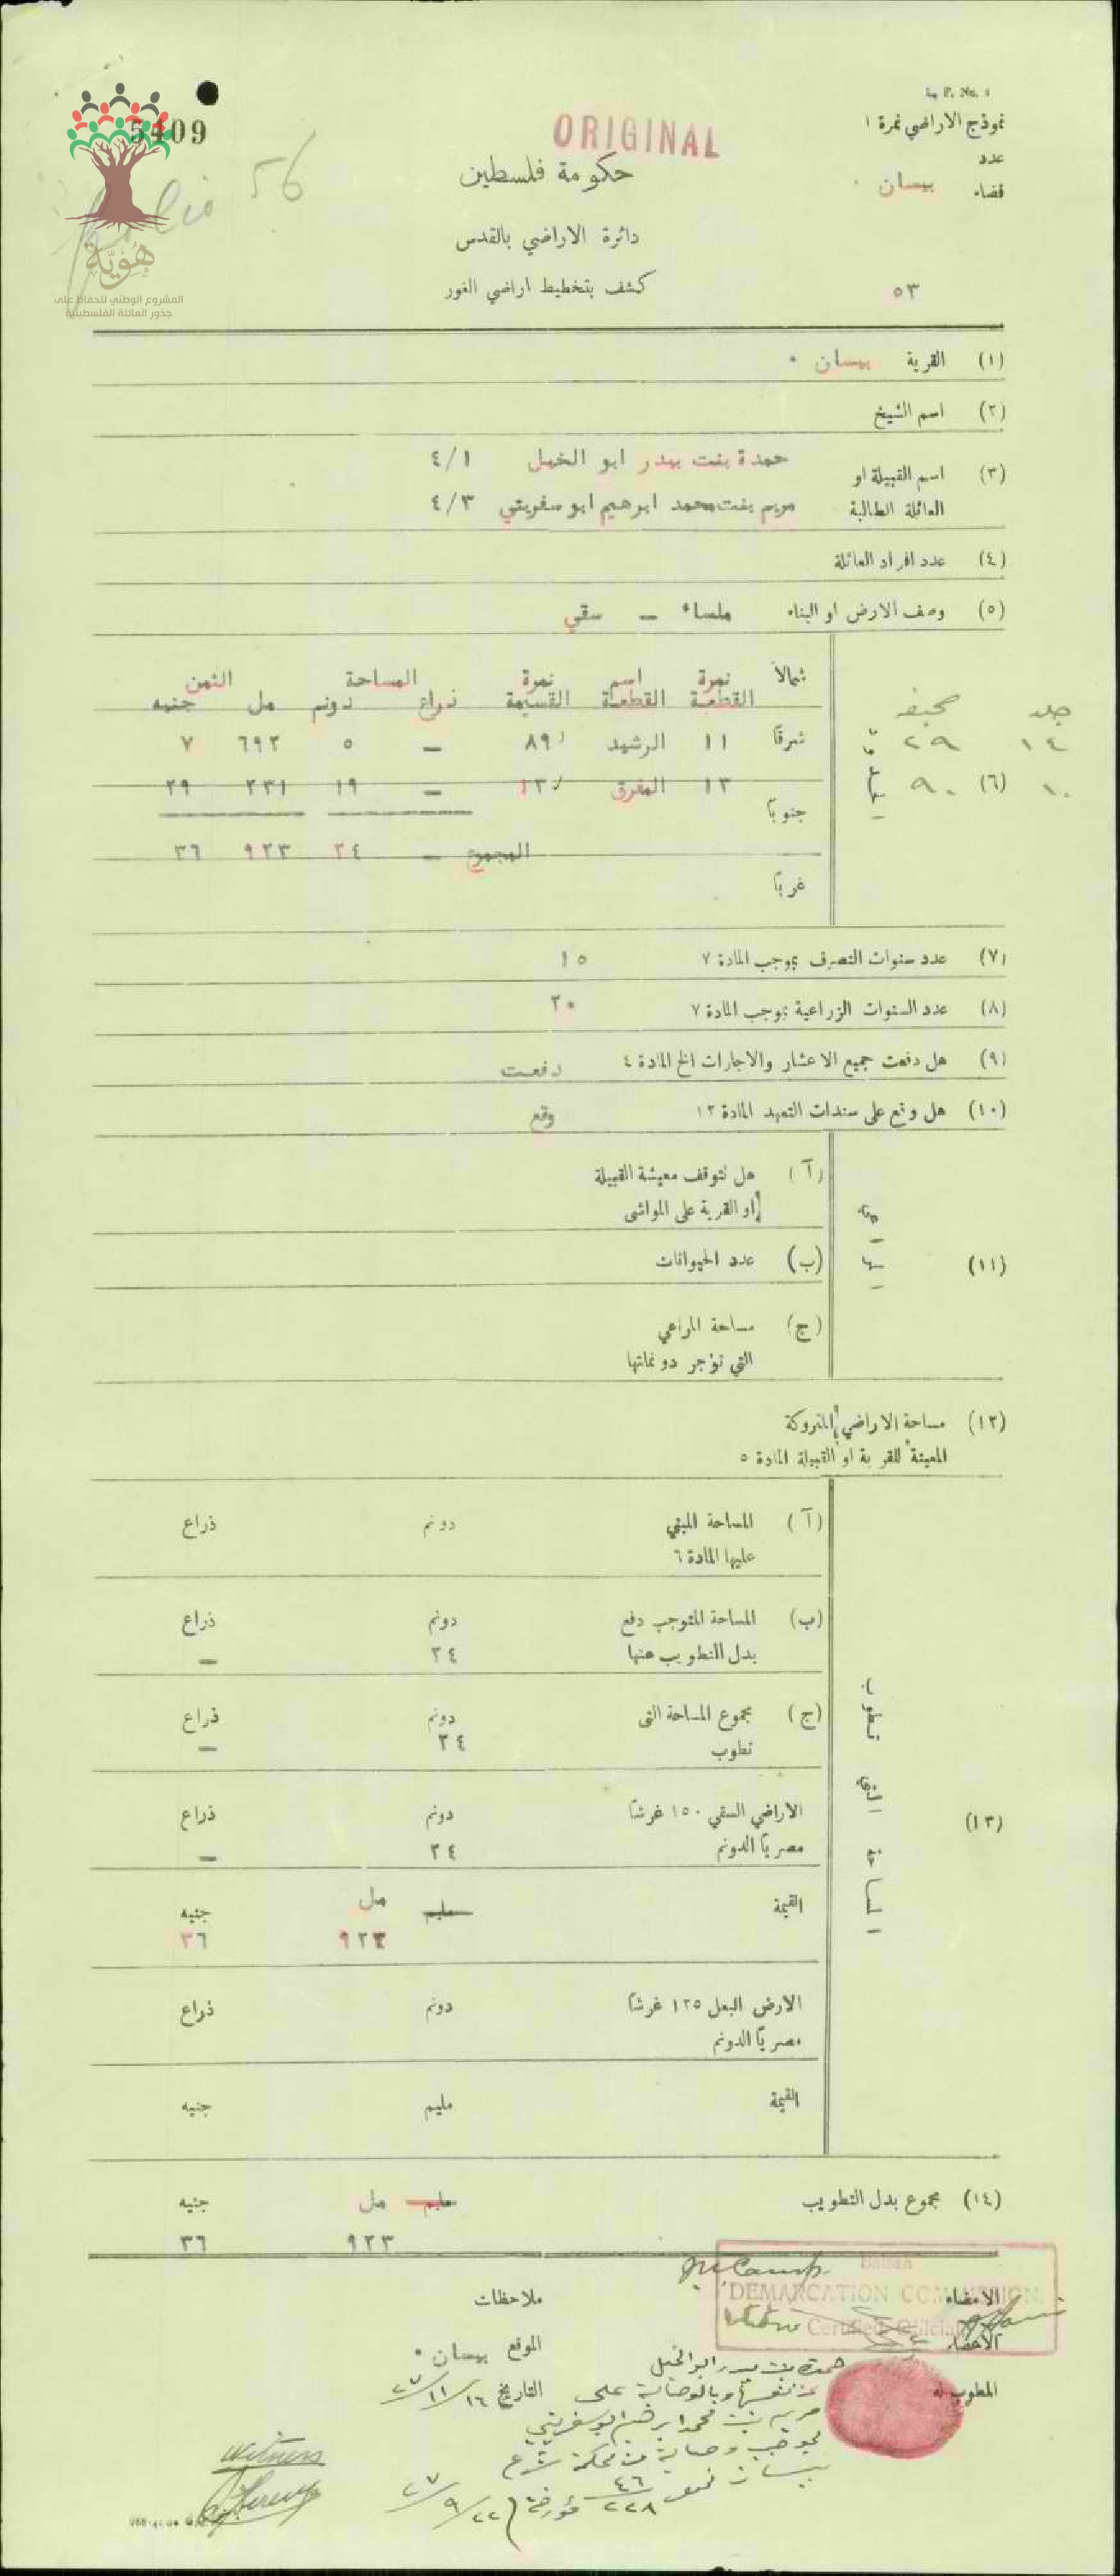 L. P. No. 1
نموذج الاراضي نمرة ١
5409
ORIGINAL
عدد
حكومة فلسطين
قضاء بيسان .
Folio 56
دائرة الاراضي بالقدس
كشف بتخطيط اراضي الغور
٥٣
هُوِيَّة
المشروع الوطني للحفاظ على
جذور العائلة الفلسطينية
(١) القرية بيسان .
(٢) اسم الشيخ
(٣) اسم القبيلة او العائلة الطالبة
حمدة بنت بيدر ابو الخيل ٤/١
مريم بنت محمد ابرهيم ابو سفريتي ٤/٣
(٤) عدد افراد العائلة
(٥) وصف الارض او البناء ملساء – سقي
جلد صحيفه
١٤ ٢٩
١٠ ٩٠
(٦)
شمالاً نمرة القطعة اسم القطعة نمرة القسيمة المساحة ذراع دونم الثمن مل جنيه
شرقاً ١١ الرشيد ٨٩ – ٥ ٦٩٢ ٧
١٣ المفرق ١٣ – ١٩ ٢٣١ ٢٩
جنوباً
المجموع – ٢٤ ٩٢٣ ٣٦
غرباً
(٧) عدد سنوات التصرف بموجب المادة ٧ ١٥
(٨) عدد السنوات الزراعية بموجب المادة ٧ ٢٠
(٩) هل دفعت جميع الاعشار والاجارات الخ المادة ٤ دفعت
(١٠) هل وقع على سندات التعهد المادة ١٢ وقع
(١١)
(آ) هل تتوقف معيشة القبيلة
او القرية على المواشى
(ب) عدد الحيوانات
(ج) مساحة المراعي
التي تؤجر دونماتها
(١٢) مساحة الاراضي المتروكة
المعينة للقرية او القبيلة المادة ٥
(١٣) المساحة التي تطوب
(آ) المساحة المبني دونم ذراع
عليها المادة ٦
(ب) المساحة المتوجب دفع دونم ذراع
بدل التطويب عنها ٢٤ –
(ج) مجموع المساحة التى دونم ذراع
تطوب ٢٤ –
الاراضي السقي ١٥٠ غرشاً دونم ذراع
مصرياً الدونم ٢٤ –
القيمة مليم مل جنيه
٩٢٣ ٣٦
الارض البعل ١٢٥ غرشاً دونم ذراع
مصرياً الدونم
القيمة مليم جنيه
(١٤) مجموع بدل التطويب مليم مل جنيه
٩٢٣ ٣٦
Baisan
DEMARCATION COMMISSION
Certified Official
الامضاء
ملاحظات
الاعضاء
الموقع بيسان .
المطوب له
التاريخ ١٦/١١/٢٧
حمدة بنت بيدر ابو الخيل
عن نفسها وبالوصاية على
مريم بنت محمد ابرهيم ابو سفريتي
بموجب وصاية من محكمة شرع
بيسان نمرة ٤٦/٢٢٨ مؤرخة ٢٢/٩/٢٧
Witness